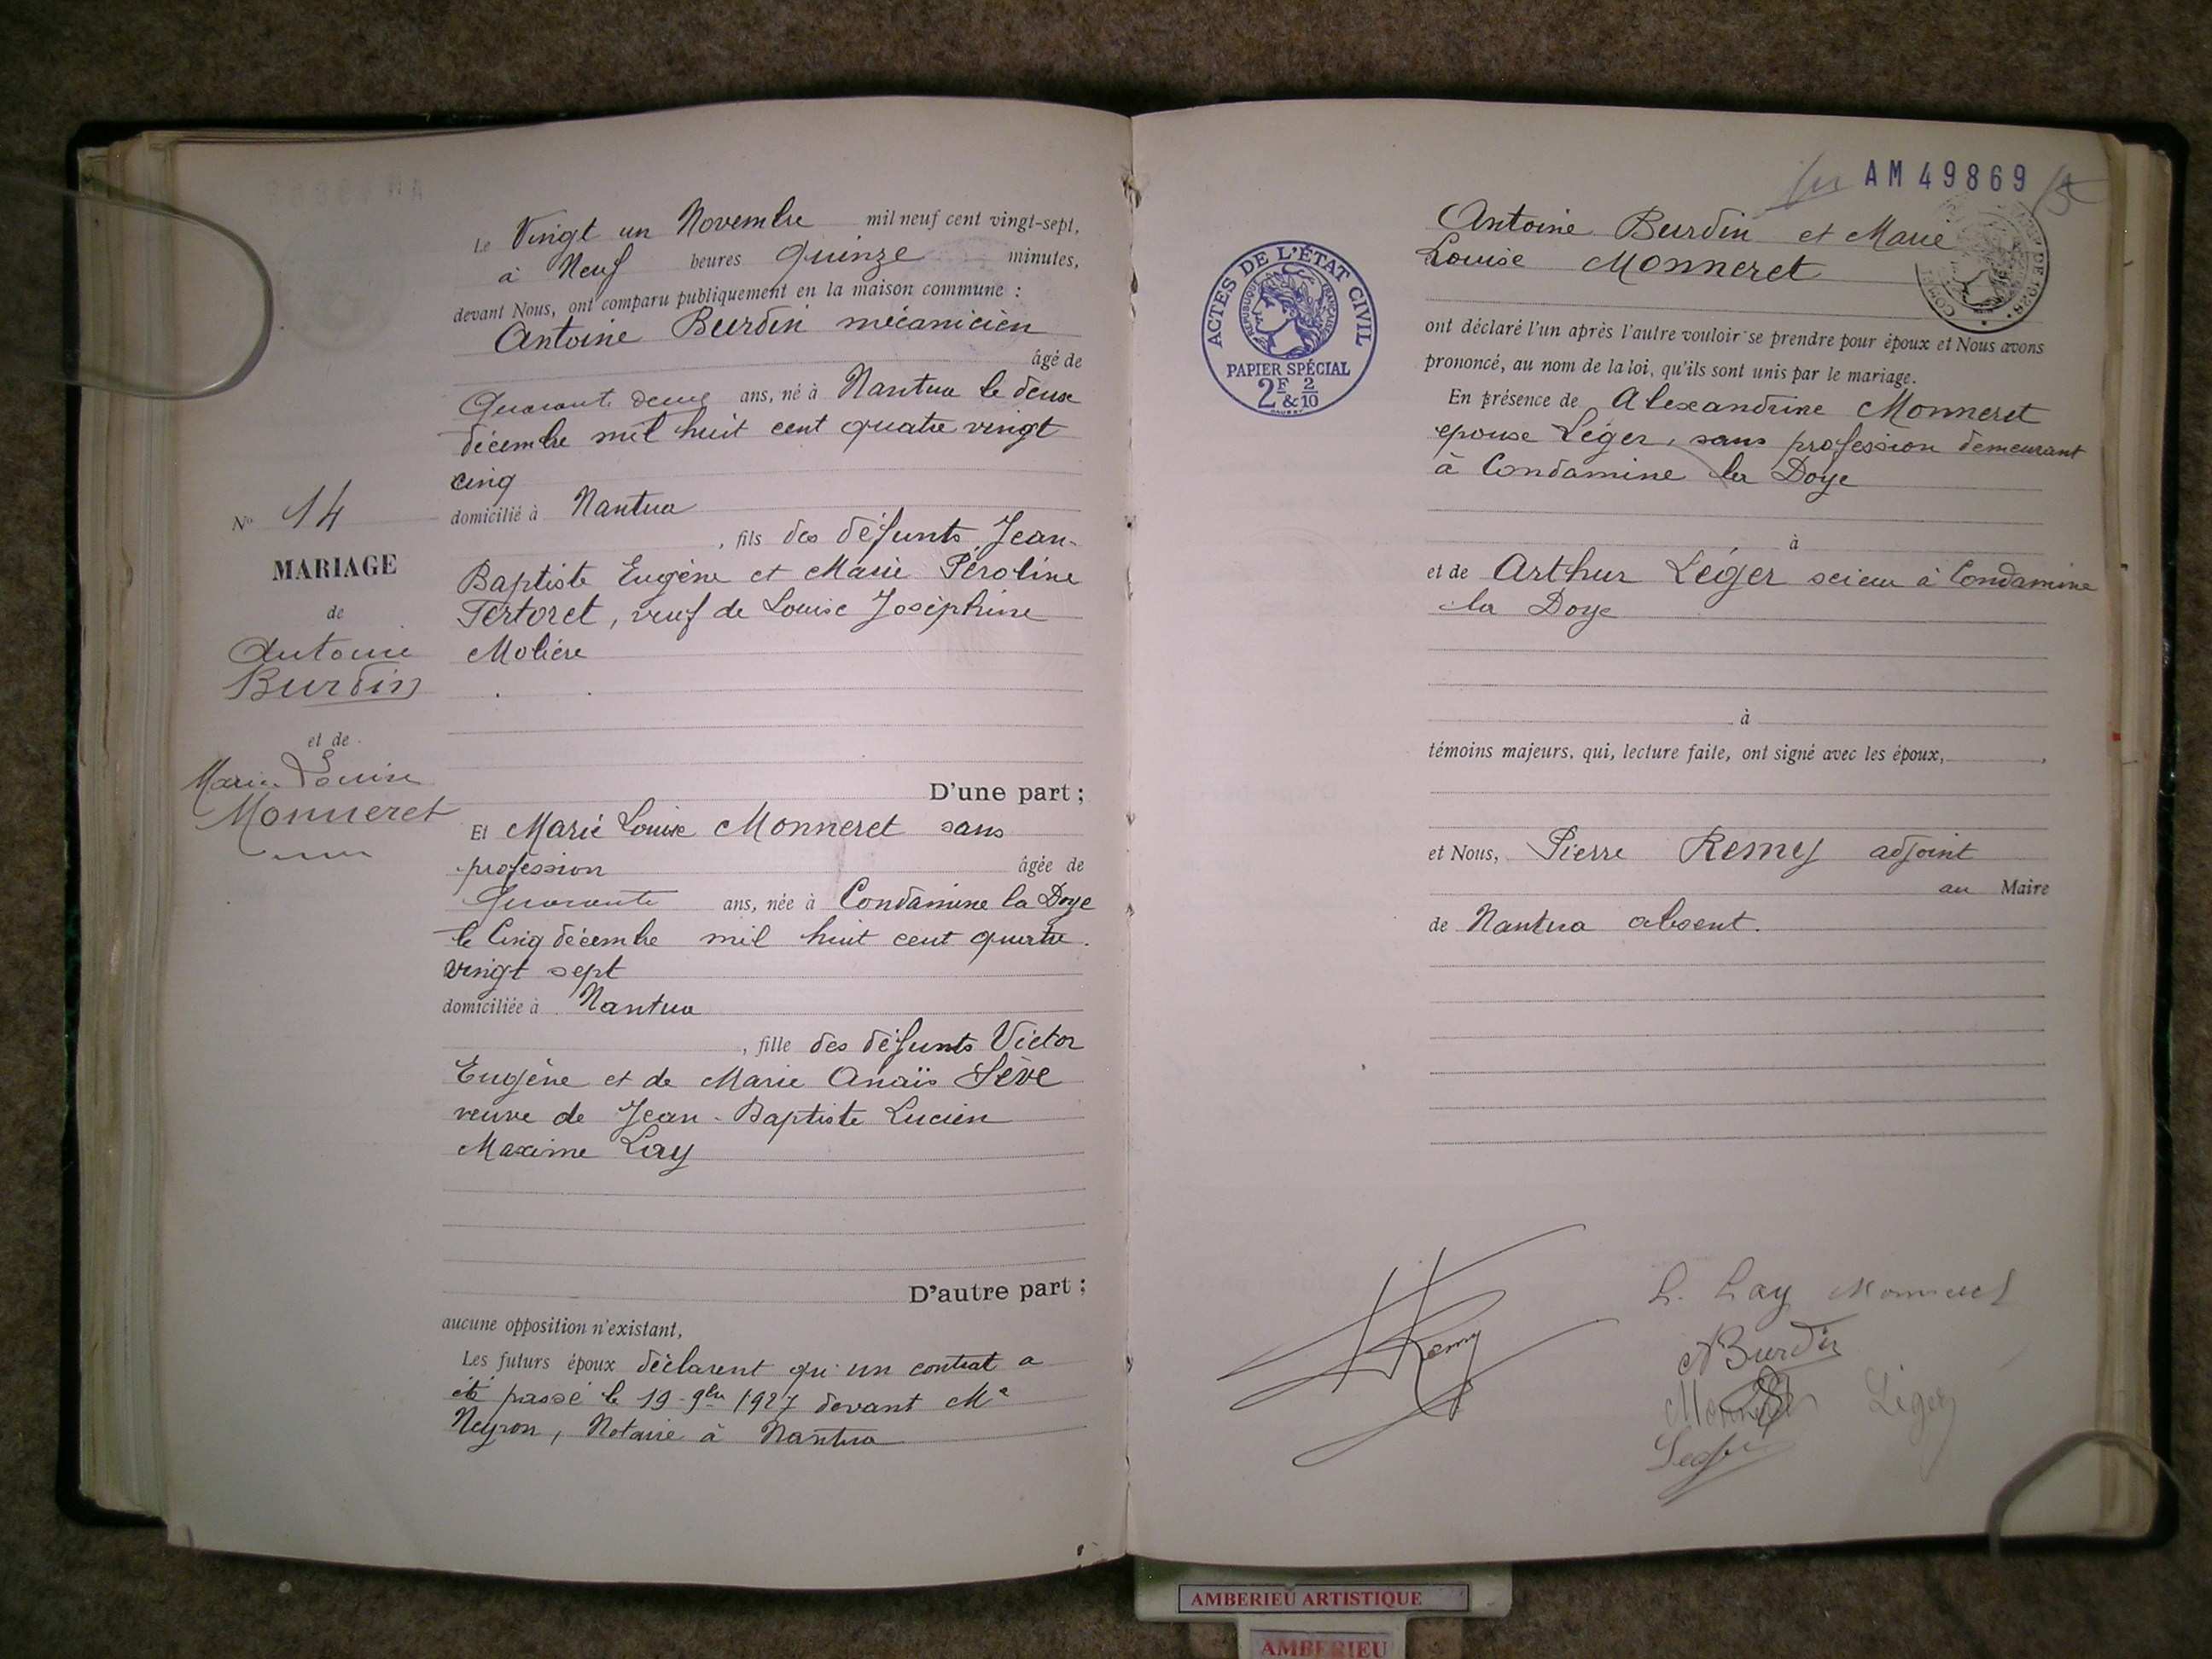 Le Vingt un Novembre mil neuf cent vingt-sept,
à Neuf heures Quinze minutes,
devant Nous, ont comparu publiquement en la maison commune :
Antoine Burdin mécanicien
âgé de
Quarante deux ans, né à Nantua le deux
décembre mil huit cent quatre vingt
cinq
domicilié à Nantua
, fils des défunts Jean-
Baptiste Eugène et Marie Péroline
Tertoret, veuf de Louise Joséphine
Molière
N° 14
MARIAGE
de
Antoine
Burdin
et de
Marie Louise
Monneret
D'une part ;
Et Marie Louise Monneret sans
profession âgée de
Quarante ans, née à Condamine la Doye
le Cinq décembre mil huit cent quatre.
vingt sept
domiciliée à Nantua
, fille des défunts Victor
Eugène et de Marie Anaïs Sève
veuve de Jean-Baptiste Lucien
Maxime Lay
D'autre part ;
aucune opposition n'existant,
Les futurs époux déclarent qu'un contrat a
été passé le 19-9bre 1927 devant Me
Neyron, Notaire à Nantua
AM 49869
ACTES DE L'ÉTAT CIVIL
RÉPUBLIQUE FRANÇAISE
PAPIER SPÉCIAL
2F & 2/10
Antoine Burdin et Marie
Louise Monneret
ont déclaré l'un après l'autre vouloir se prendre pour époux et Nous avons
prononcé, au nom de la loi, qu'ils sont unis par le mariage.
En présence de Alexandrine Monneret
epouse Léger, sans profession demeurant
à Condamine la Doye
à
et de Arthur Léger scieur à Condamine
la Doye
à
témoins majeurs, qui, lecture faite, ont signé avec les époux,
et Nous, Pierre Remy adjoint
au Maire
de Nantua absent.
L. Lay Monneret
Remy
A Burdin
Léger
AMBERIEU ARTISTIQUE
AMBERIEU